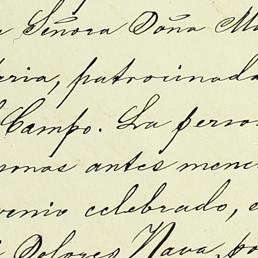 Señora Doña Ma
eria, patrocinada
Campo. La perso
sonas antes menc
venio celebrado, e
Dolores Nava, po